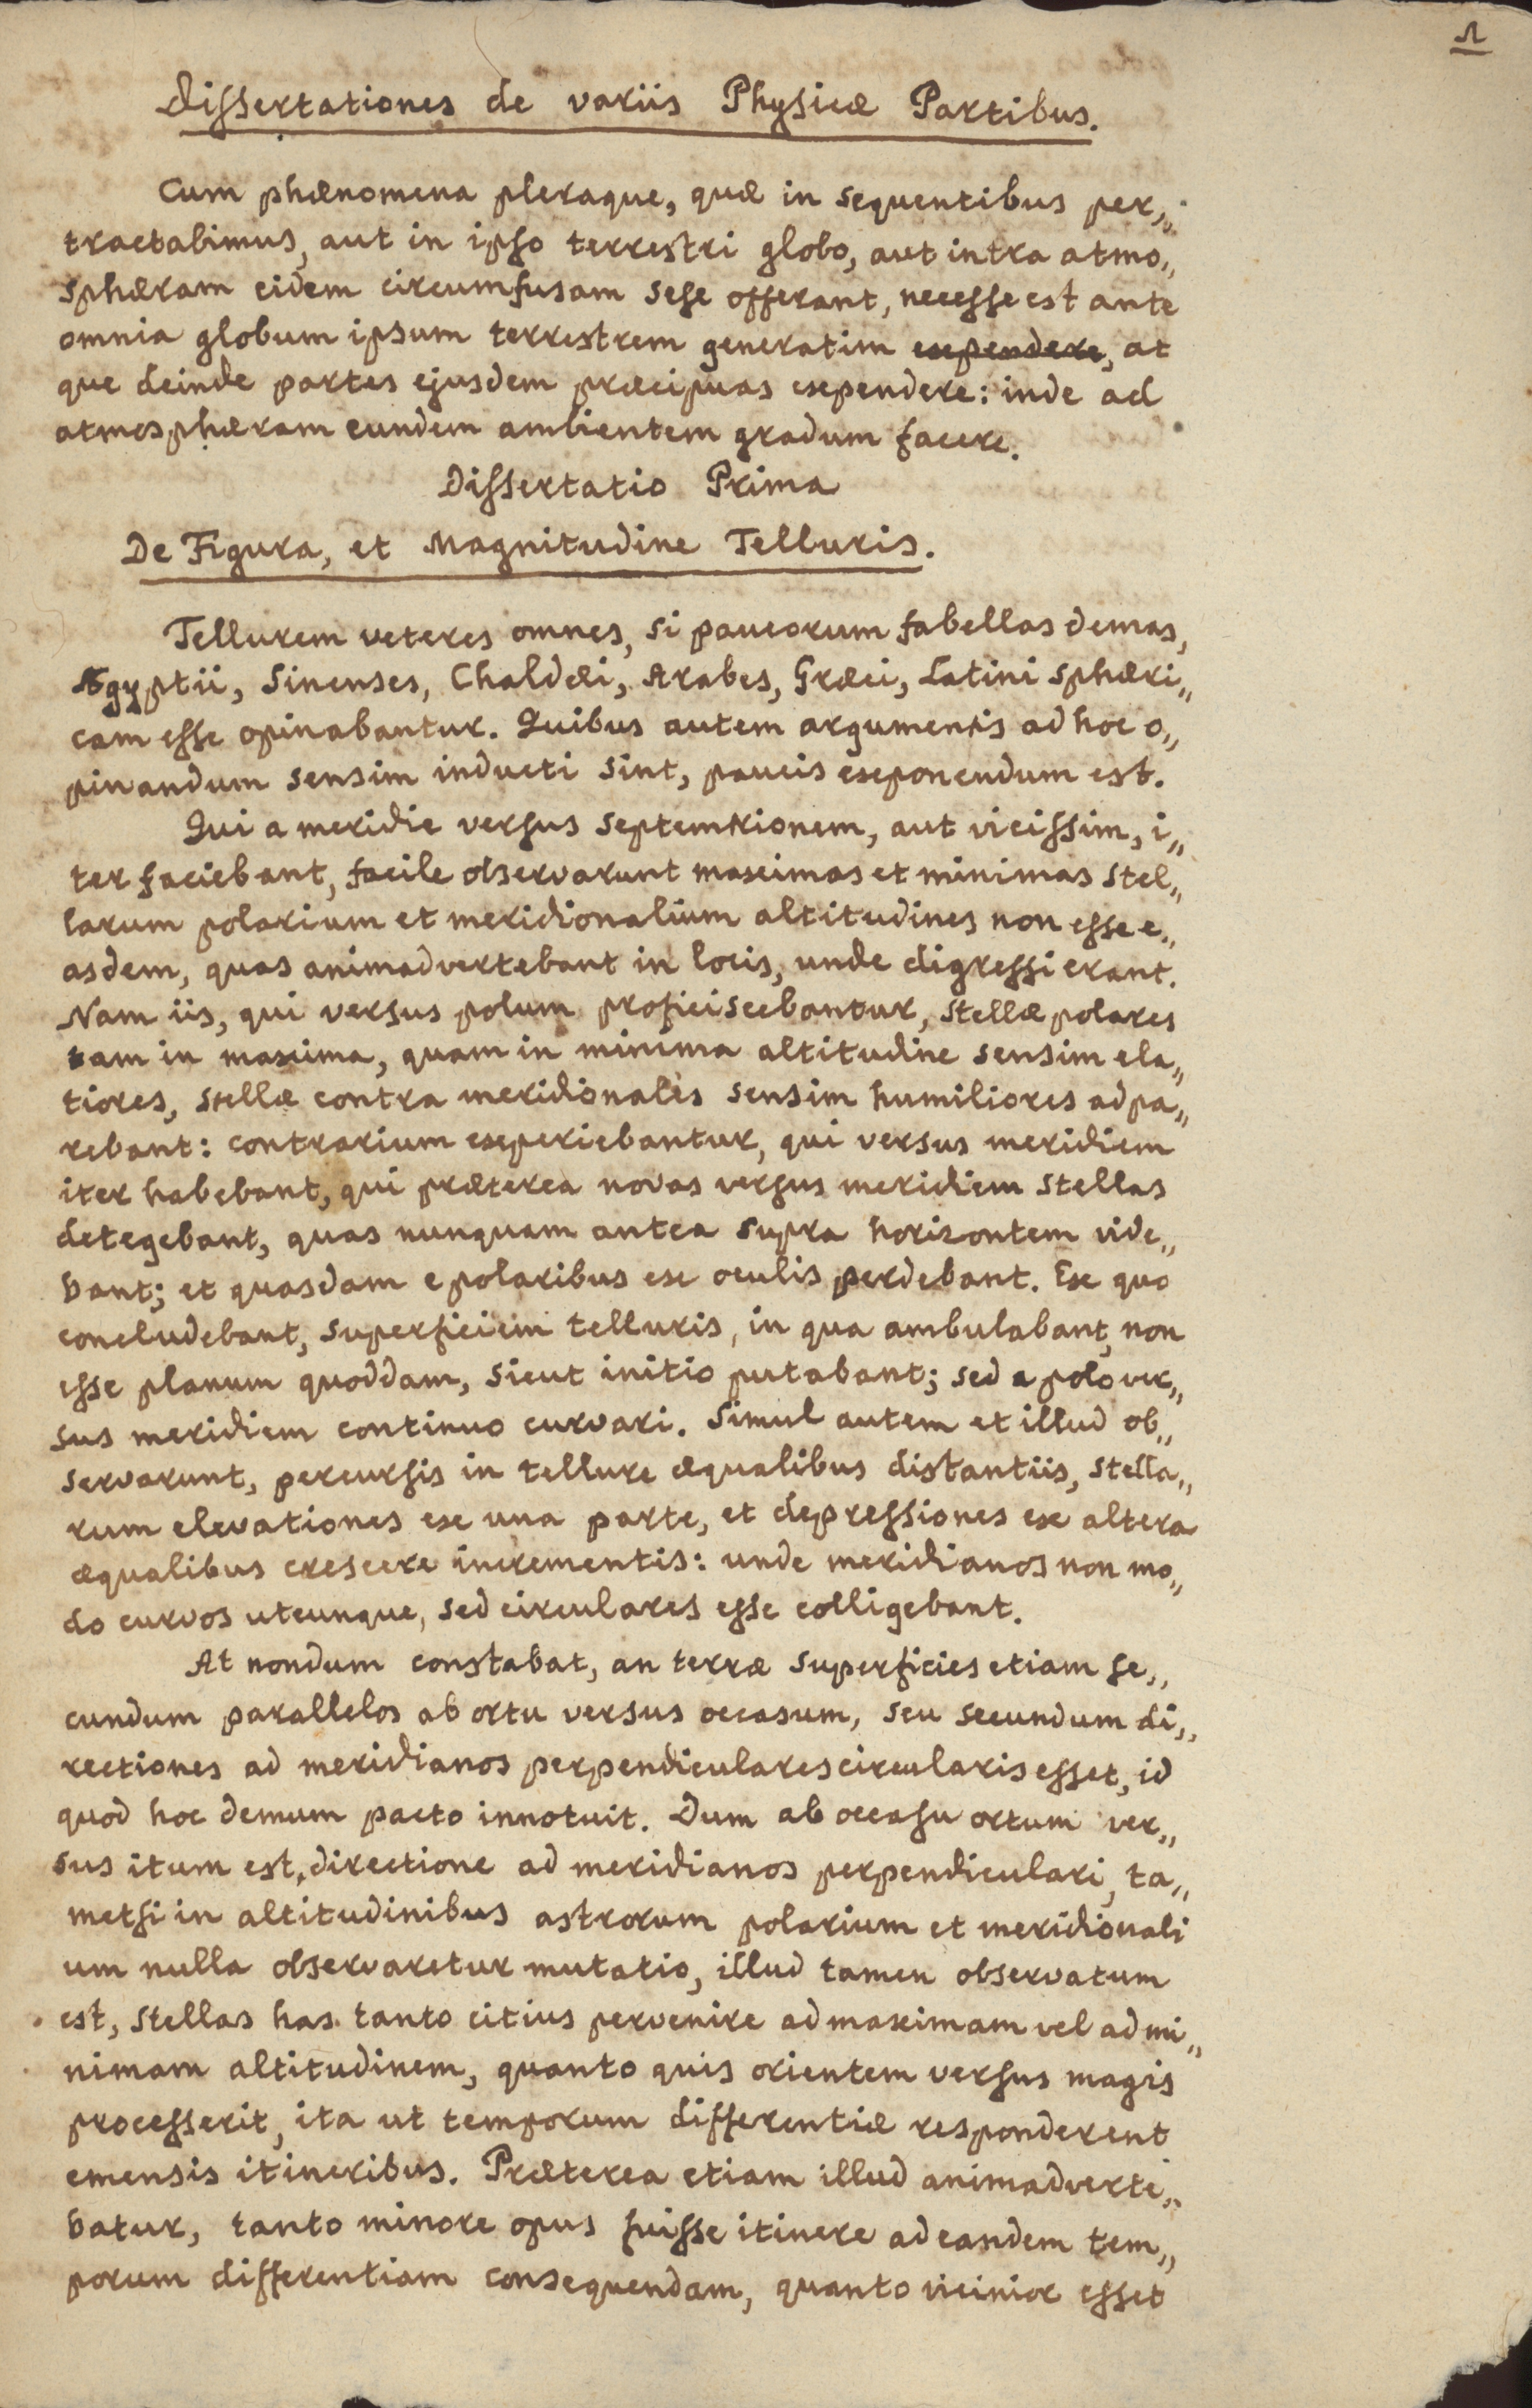 1
Dissertationes de variis Physicæ Partibus.
Cum phænomena pleraque, quæ in sequentibus per„
tractabimus, aut in ipso terrestri globo, aut intra atmo„
sphæram eidem circumfusam sese offerant, necesse est ante
omnia globum ipsum terrestrem generatim expendere, at
que deinde partes ejusdem præcipuas expendere: inde ad
atmosphæram eundem ambientem gradum facere.
Dissertatio Prima
De Figura, et Magnitudine Telluris.
Tellurem veteres omnes, si paucorum fabellas demas,
Ægyptii, Sinenses, Chaldæi, Arabes, Græci, Latini sphæri„
cam esse opinabantur. Quibus autem argumentis ad hoc o„
pinandum sensim inducti sint, paucis exponendum est.
Qui a meridie versus septemtrionem, aut vicissim, i„
ter faciebant, facile observarunt maximas et minimas stel„
larum polarium et meridionalium altitudines non esse e„
asdem, quas animadvertebant in locis, unde digressi erant.
Nam iis, qui versus polum proficiscebantur, stellæ polares
tam in maxima, quam in minima altitudine sensim ela„
tiores, stellæ contra meridionales sensim humiliores adpa„
rebant: contrarium experiebantur, qui versus meridiem
iter habebant, qui præterea novas versus meridiem stellas
detegebant, quas nunquam antea supra horizontem vide„
bant; et quasdam e polaribus ex oculis perdebant. Ex quo
concludebant, superficiem telluris, in qua ambulabant, non
esse planum quoddam, sicut initio putabant; sed a polo ver„
sus meridiem continuo curvari. Simul autem et illud ob„
servarunt, percursis in tellure æqualibus distantiis, stella„
rum elevationes ex una parte, et depressiones ex altera
æqualibus crescere incrementis: unde meridianos non mo„
do curvos utcunque, sed circulares esse colligebant.
At nondum constabat, an terræ superficies etiam se„
cundum parallelos ab ortu versus occasum, seu secundum di„
rectiones ad meridianos perpendiculares circularis esset, id
quod hoc demum pacto innotuit. Dum ab occasu ortum ver„
sus itum est, directione ad meridianos perpendiculari, ta„
metsi in altitudinibus astrorum polarium et meridionali
um nulla observaretur mutatio, illud tamen observatum
est, stellas has tanto citius pervenire ad maximam vel ad mi„
nimam altitudinem, quanto quis orientem versus magis
processerit, ita ut temporum differentiæ responderent
emensis itineribus. Præterea etiam illud animadverte„
batur, tanto minore opus fuisse itinere ad eandem tem„
porum differentiam consequendam, quanto vicinior esset